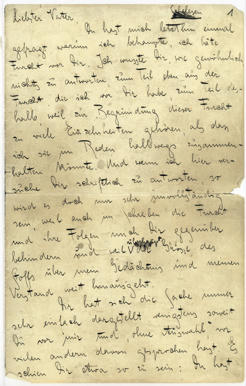 1
Liebster Vater,
Du hast mich letzthin einmal
gefragt, warum ich behaupte, ich hätte
Furcht vor Dir. Ich wusste Dir, wie gewöhnlich,
nichts zu antworten, zum Teil eben aus der
Furcht die ich vor Dir habe, zum Teil des-
halb weil zur Begründung dieser Furcht
zu viele Einzelnheiten gehören, als dass
ich sie im Reden halbwegs zusammen-
halten könnte. Und wenn ich hier ver-
suche Dir schriftlich zu antworten, so
wird es doch nur sehr unvollständig
sein, weil auch im Schreiben die Furcht
und ihre Folgen mich Dir gegenüber
behindern und weil Grösse des
Stoffs über mein Gedächtnis und meinen
Verstand weit hinausgeht.
Dir hat sich die Sache immer
sehr einfach dargestellt, wenigstens soweit
Du vor mir und, ohne Auswahl, vor
vielen andern davon gesprochen hast. Es
schien Dir etwa so zu sein: Du hast